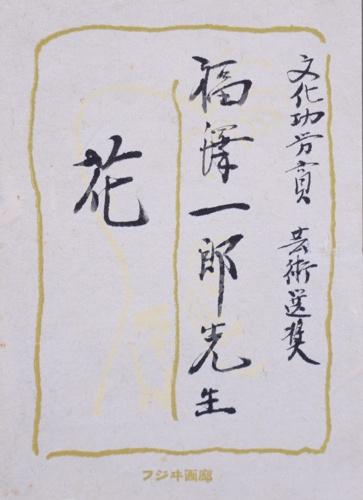 文化功労賞 芸術選奨
福澤一郎先生
花
フジヰ画廊